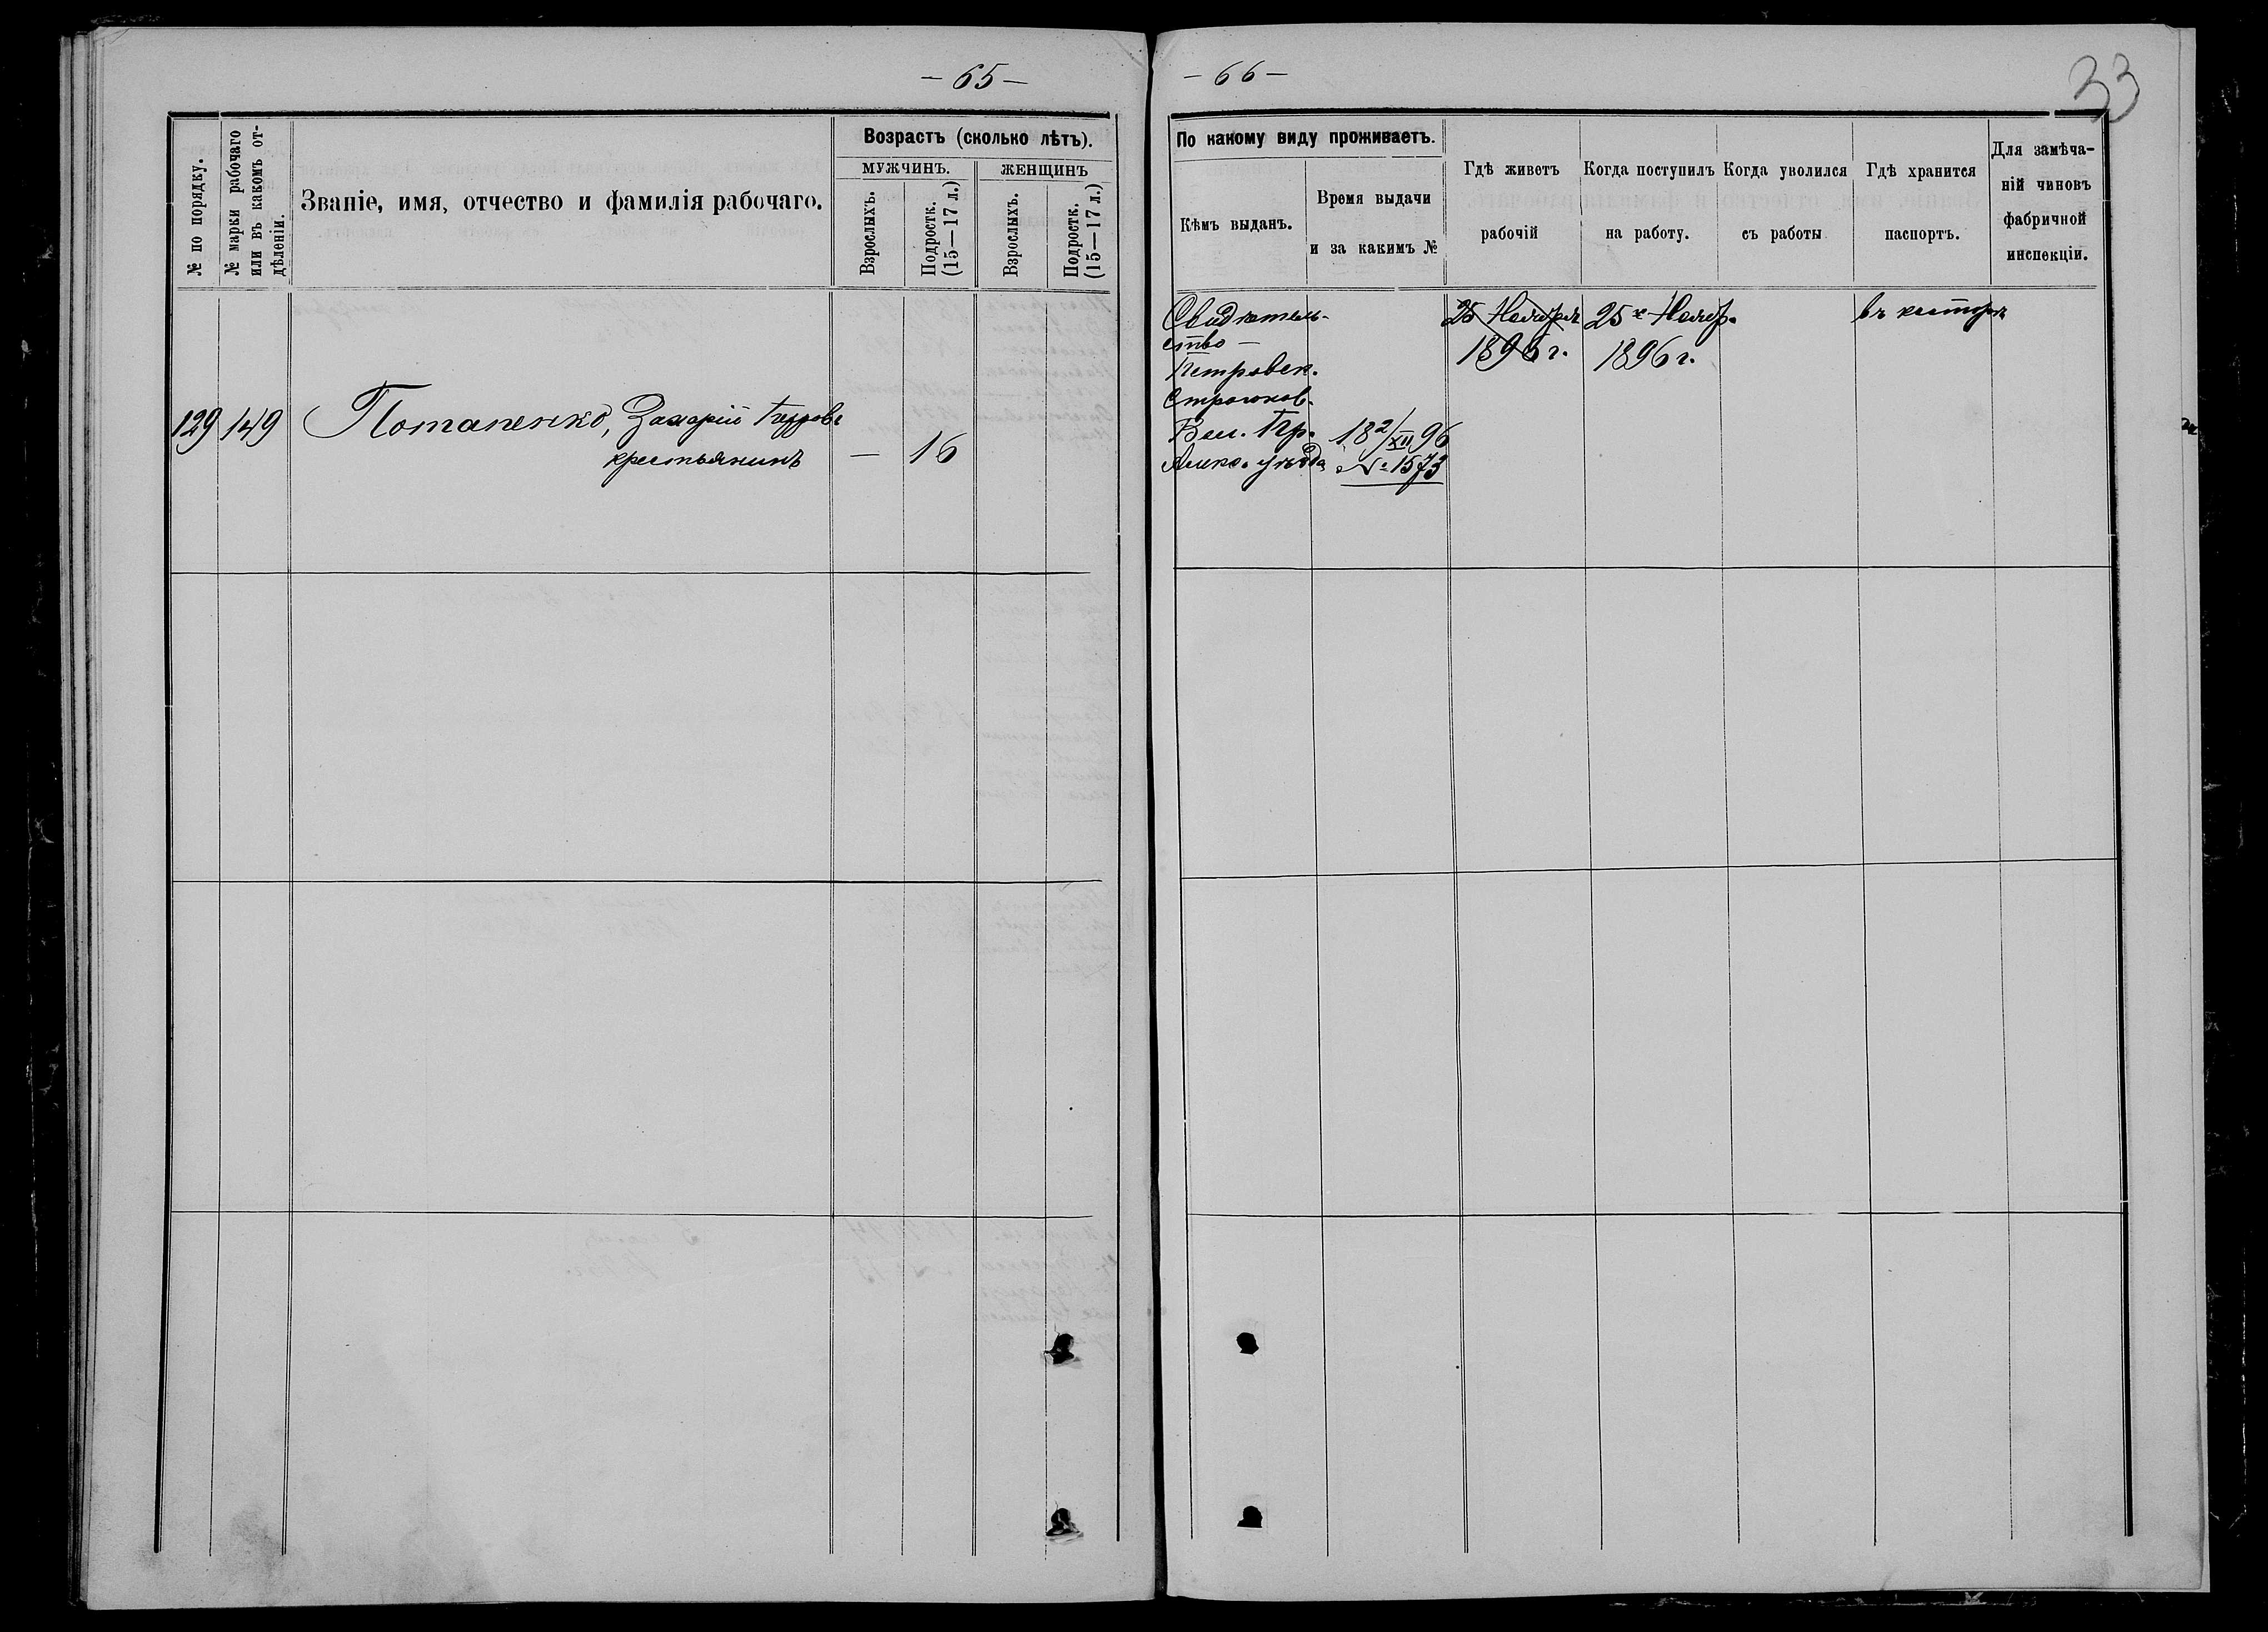 — 65 —
№ по порядку.
№ марки рабочаго
или въ какомъ от-
дѣленіи.
Званіе, имя, отчество и фамилія рабочаго.
Возрастъ (сколько лѣтъ).
МУЖЧИНЪ.
ЖЕНЩИНЪ
Взрослыхъ.
Подростк.
(15—17 л.)
Взрослыхъ.
Подростк.
(15—17 л.)
129
149
Потапенко, Захарій
крестьянинъ
—
16
— 66 —
33
По какому виду проживаетъ.
Кѣмъ выданъ.
Время выдачи
и за какимъ №
Гдѣ живетъ
рабочій
Когда поступилъ
на работу.
Когда уволился
съ работы
Гдѣ хранится
паспортъ.
Для замѣча-
ній чиновъ
фабричной
инспекціи.
Свидѣтель-
ство —
Петровск.
Вол. Пр.
уѣзда
18 2/XII 96
№ 1573
25 Ноября
1896 г.
25 Нояб.
1896 г.
въ конторѣ